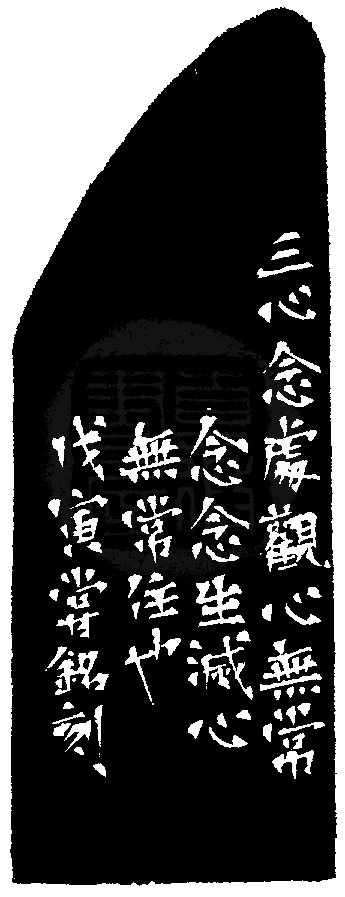 三心念處觀心無常
念念生滅心
無常住也
戊寅銘刻